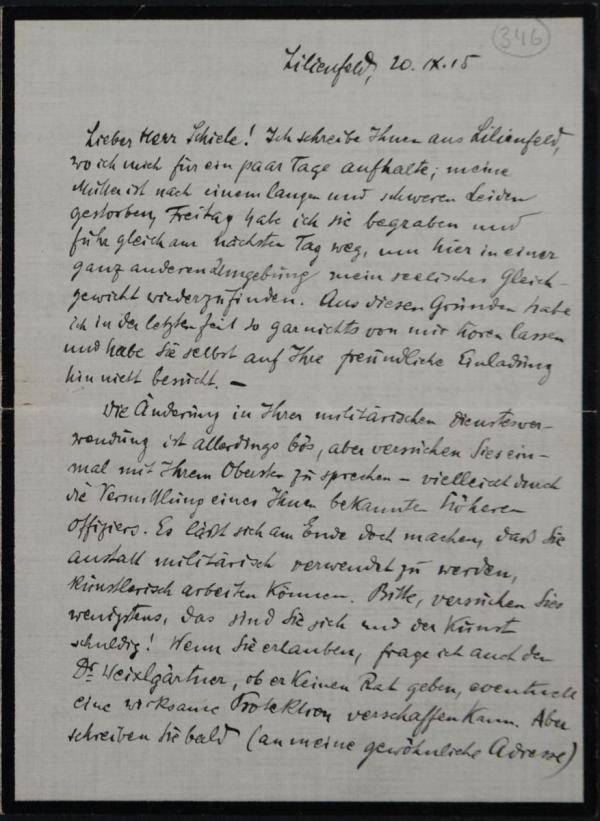 346
Lilienfeld, 20. IX. 15
Lieber Herr Schiele! Ich schreibe Ihnen aus Lilienfeld,
wo ich mich für ein paar Tage aufhalte; meine
Mutter ist nach einem langen und schweren Leiden
gestorben, Freitag habe ich sie begraben und
fuhr gleich am nächsten Tag weg, um hier in einer
ganz anderen Umgebung mein seelisches Gleich-
gewicht wiederzufinden. Aus diesen Gründen habe
ich in der letzten Zeit so gar nichts von mir hören lassen
und habe Sie selbst auf Ihre freundliche Einladung
hin nicht besucht. —
Die Änderung in Ihrer militärischen Dienstesver-
wendung ist allerdings bös, aber versuchen Sies ein-
mal mit Ihrem Obersten zu sprechen – vielleicht durch
die Vermittlung eines Ihnen bekannten höheren
Offiziers. Es läßt sich am Ende doch machen, dass Sie
anstatt militärisch verwendet zu werden,
künstlerisch arbeiten können. Bitte, versuchen Sies
wenigstens, das sind Sie sich und der Kunst
schuldig! Wenn Sie erlauben, frage ich auch den
Dr Weixlgärtner, ob er keinen Rat geben, eventuell
eine wirksame Protektion verschaffen kann. Aber
schreiben Sie bald (an meine gewöhnliche Adresse)